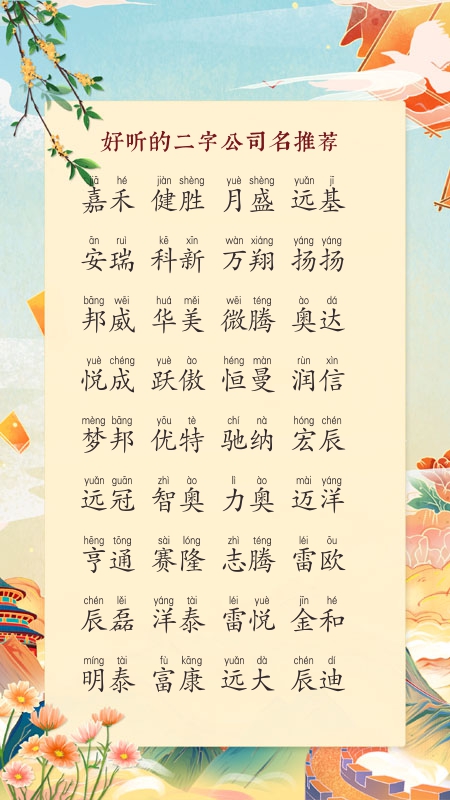 好听的二字公司名推荐
jiā hé jiàn shèng yuè shèng yuǎn jī
嘉禾 健胜 月盛 远基
ān ruì kē xīn wàn xiáng yáng yáng
安瑞 科新 万翔 扬扬
bāng wēi huá měi wēi téng ào dá
邦威 华美 微腾 奥达
yuè chéng yuè ào héng màn rùn xìn
悦成 跃傲 恒曼 润信
mèng bāng yōu tè chí nà hóng chén
梦邦 优特 驰纳 宏辰
yuǎn guān zhì ào lì ào mài yáng
远冠 智奥 力奥 迈洋
hēng tōng sài lóng zhì téng léi ōu
亨通 赛隆 志腾 雷欧
chén lěi yáng tài léi yuè jīn hé
辰磊 洋泰 雷悦 金和
míng tài fù kāng yuǎn dà chén dí
明泰 富康 远大 辰迪